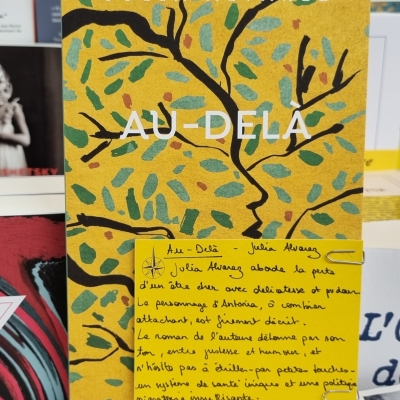 AU-DELÀ
Au-Delà - Julia Alvarez
Julia Alvarez aborde la perte
d'un être cher avec délicatesse et pudeur.
Le personnage d'Antonia, ô combien
attachant, est finement décrit.
Le roman de l'auteure détonne par son
ton, entre justesse et humour, et
n'hésite pas à étriller - par petites touches -
un système de santé inique et une politique
migratoire
L'O